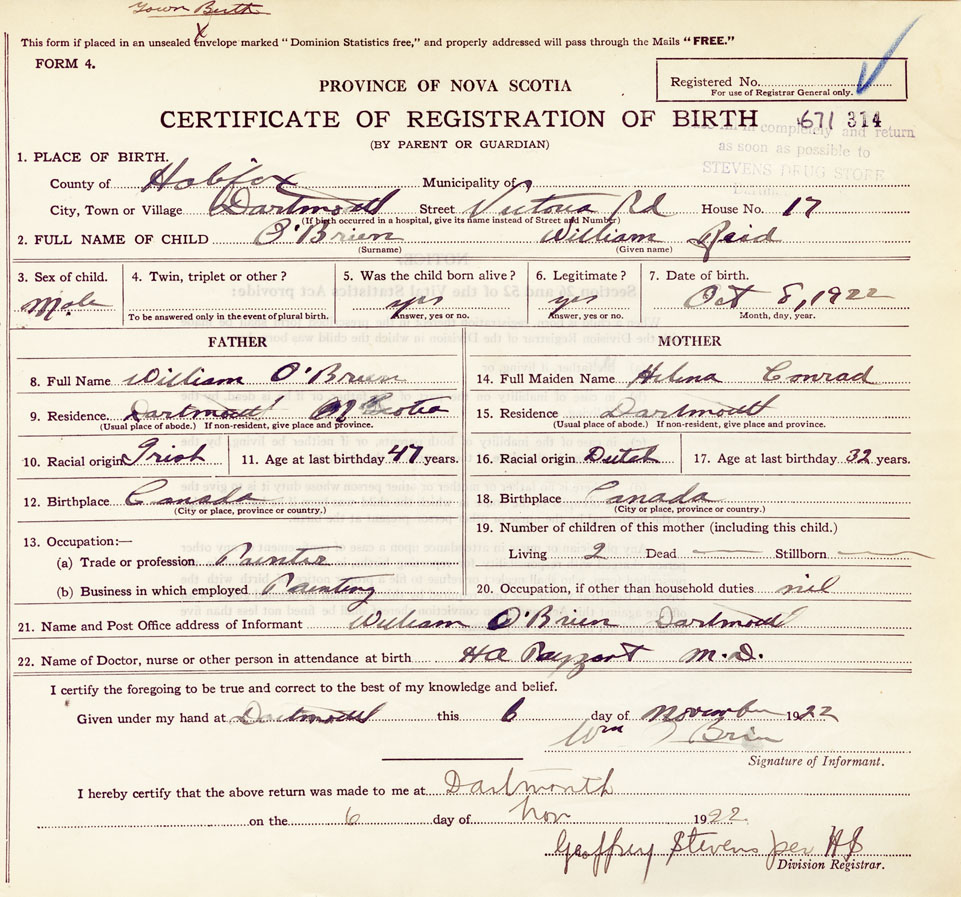 Town Birth
X
This form if placed in an unsealed envelope marked "Dominion Statistics free," and properly addressed will pass through the Mails "FREE."
FORM 4.
PROVINCE OF NOVA SCOTIA
Registered No.
For use of Registrar General only.
CERTIFICATE OF REGISTRATION OF BIRTH
671 314
(BY PARENT OR GUARDIAN)
in completely and return
as soon as possible to
STEVENS DRUG STORE
1. PLACE OF BIRTH.
County of Halifax Municipality of
City, Town or Village Dartmouth Street Victoria Rd House No. 17
(If birth occurred in a hospital, give its name instead of Street and Number)
2. FULL NAME OF CHILD O'Brien William Reid
(Surname) (Given name)
3. Sex of child. 4. Twin, triplet or other? 5. Was the child born alive? 6. Legitimate? 7. Date of birth.
Male yes yes Oct 8, 1922
To be answered only in the event of plural birth. Answer, yes or no. Answer, yes or no. Month, day, year.
FATHER
8. Full Name William O'Brien
9. Residence Dartmouth N Scotia
(Usual place of abode.) If non-resident, give place and province.
10. Racial origin Irish 11. Age at last birthday 47 years.
12. Birthplace Canada
(City or place, province or country.)
13. Occupation:—
(a) Trade or profession Painter
(b) Business in which employed Painting
MOTHER
14. Full Maiden Name Helena Conrad
15. Residence Dartmouth
(Usual place of abode.) If non-resident, give place and province.
16. Racial origin Dutch 17. Age at last birthday 32 years.
18. Birthplace Canada
(City or place, province or country.)
19. Number of children of this mother (including this child.)
Living 2 Dead — Stillborn —
20. Occupation, if other than household duties nil
21. Name and Post Office address of Informant William O'Brien Dartmouth
22. Name of Doctor, nurse or other person in attendance at birth H A Payzant M.D.
I certify the foregoing to be true and correct to the best of my knowledge and belief.
Given under my hand at Dartmouth this 6 day of November 1922
Wm O'Brien
Signature of Informant.
I hereby certify that the above return was made to me at Dartmouth
on the 6 day of Nov 1922
Geoffrey Stevens per HS
Division Registrar.